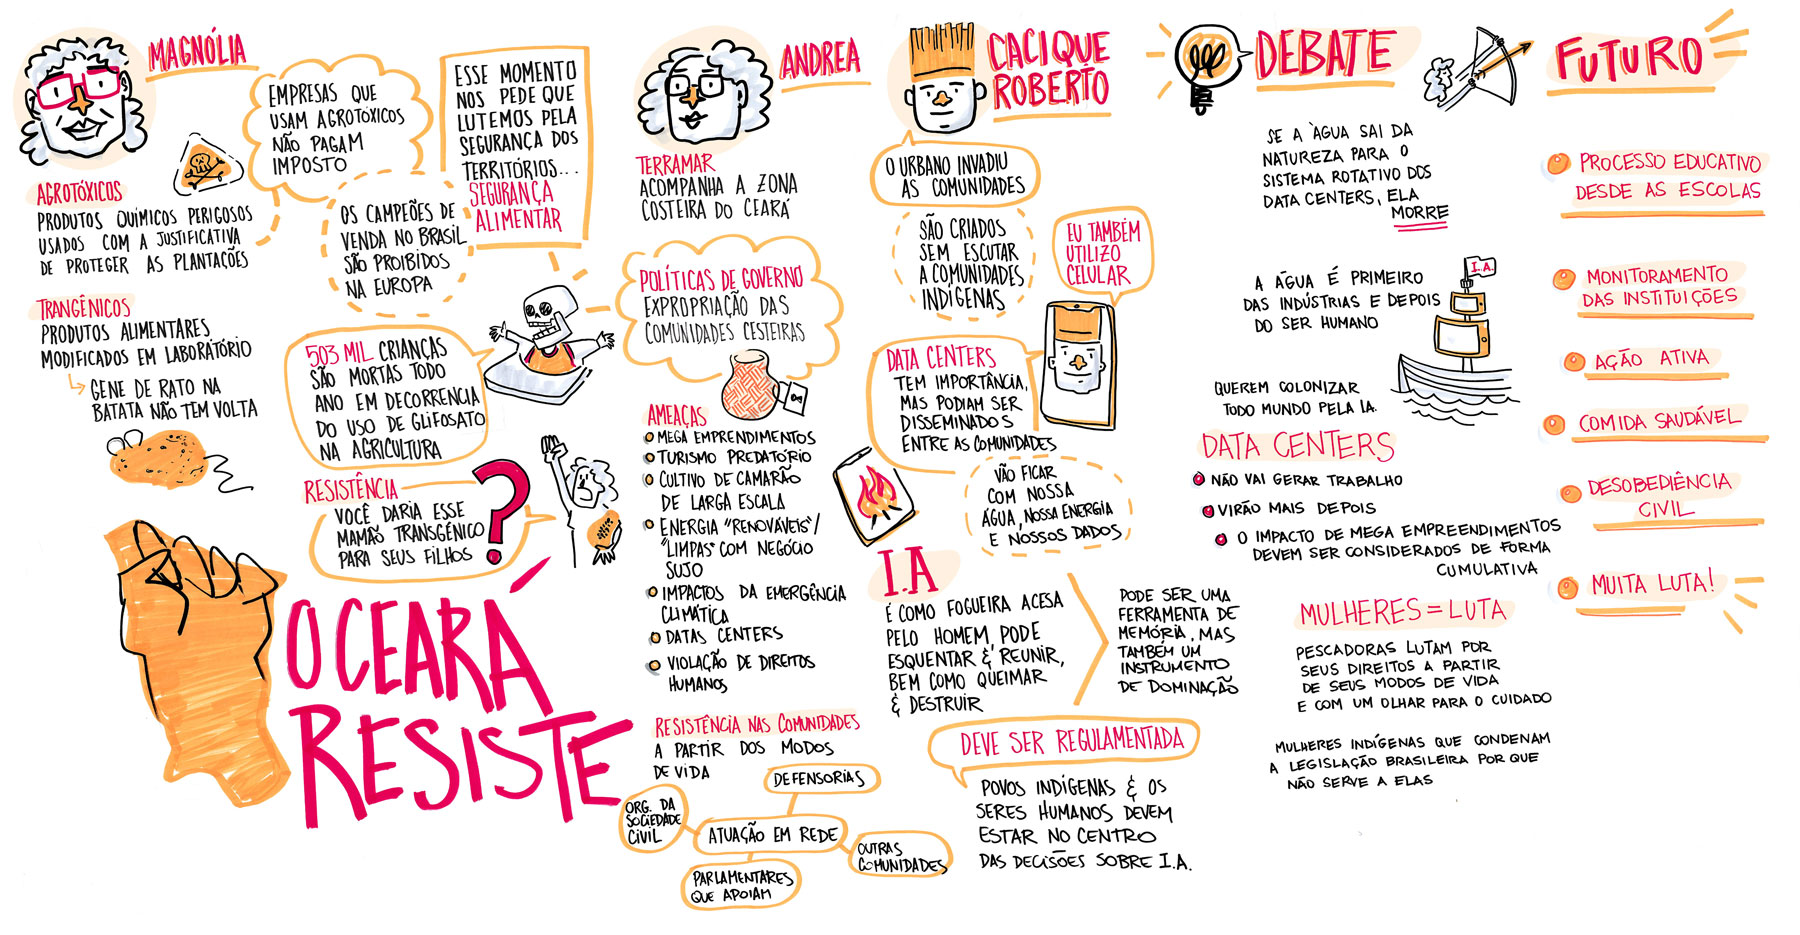 MAGNÓLIA
AGROTÓXICOS
PRODUTOS QUÍMICOS PERIGOSOS
USADOS COM A JUSTIFICATIVA
DE PROTEGER AS PLANTAÇÕES
TRANGÊNICOS
PRODUTOS ALIMENTARES
MODIFICADOS EM LABORATÓRIO
GENE DE RATO NA
BATATA NÃO TEM VOLTA
EMPRESAS QUE
USAM AGROTÓXICOS
NÃO PAGAM
IMPOSTO
OS CAMPEÕES DE
VENDA NO BRASIL
SÃO PROIBIDOS
NA EUROPA
ESSE MOMENTO
NOS PEDE QUE
LUTEMOS PELA
SEGURANÇA DOS
TERRITÓRIOS...
SEGURANÇA
ALIMENTAR
503 MIL CRIANÇAS
SÃO MORTAS TODO
ANO EM DECORRENCIA
DO USO DE GLIFOSATO
NA AGRICULTURA
RESISTÊNCIA
VOCÊ DARIA ESSE
MAMÃO TRANSGÊNICO
PARA SEUS FILHOS
?
O CEARÁ
RESISTE
ANDREA
TERRAMAR
ACOMPANHA A ZONA
COSTEIRA DO CEARÁ
POLÍTICAS DE GOVERNO
EXPROPRIAÇÃO DAS
COMUNIDADES CESTEIRAS
AMEAÇAS
MEGA EMPRENDIMENTOS
TURISMO PREDATÓRIO
CULTIVO DE CAMARÃO
DE LARGA ESCALA
ENERGIA "RENOVÁVEIS"/
"LIMPAS" COM NEGÓCIO
SUJO
IMPACTOS DA EMERGÊNCIA
CLIMÁTICA
DATAS CENTERS
VIOLAÇÃO DE DIREITOS
HUMANOS
RESISTÊNCIA NAS COMUNIDADES
A PARTIR DOS MODOS
DE VIDA
DEFENSORIAS
ORG. DA
SOCIEDADE
CIVIL
ATUAÇÃO EM REDE
OUTRAS
COMUNIDADES
PARLAMENTARES
QUE APOIAM
CACIQUE
ROBERTO
O URBANO INVADIU
AS COMUNIDADES
SÃO CRIADOS
SEM ESCUTAR
A COMUNIDADES
INDÍGENAS
EU TAMBÉM
UTILIZO
CELULAR
DATA CENTERS
TEM IMPORTÂNCIA,
MAS PODIAM SER
DISSEMINADOS
ENTRE AS COMUNIDADES
VÃO FICAR
COM NOSSA
ÁGUA, NOSSA ENERGIA
E NOSSOS DADOS
I.A
É COMO FOGUEIRA ACESA
PELO HOMEM, PODE
ESQUENTAR & REUNIR,
BEM COMO QUEIMAR
& DESTRUIR
PODE SER UMA
FERRAMENTA DE
MEMÓRIA, MAS
TAMBÉM UM
INSTRUMENTO
DE DOMINAÇÃO
DEVE SER REGULAMENTADA
POVOS INDÍGENAS & OS
SERES HUMANOS DEVEM
ESTAR NO CENTRO
DAS DECISÕES SOBRE I.A.
DEBATE
SE A ÀGUA SAI DA
NATUREZA PARA O
SISTEMA ROTATIVO DOS
DATA CENTERS, ELA
MORRE
A ÁGUA É PRIMEIRO
DAS INDÚSTRIAS E DEPOIS
DO SER HUMANO
I.A.
QUEREM COLONIZAR
TODO MUNDO PELA IA.
DATA CENTERS
NÃO VAI GERAR TRABALHO
VIRÃO MAIS DEPOIS
O IMPACTO DE MEGA EMPREENDIMENTOS
DEVEM SER CONSIDERADOS DE FORMA
CUMULATIVA
MULHERES = LUTA
PESCADORAS LUTAM POR
SEUS DIREITOS A PARTIR
DE SEUS MODOS DE VIDA
E COM UM OLHAR PARA O CUIDADO
MULHERES INDÍGENAS QUE CONDENAM
A LEGISLAÇÃO BRASILEIRA POR QUE
NÃO SERVE A ELAS
FUTURO
PROCESSO EDUCATIVO
DESDE AS ESCOLAS
MONITORAMENTO
DAS INSTITUIÇÕES
AÇÃO ATIVA
COMIDA SAUDÁVEL
DESOBEDIÊNCIA
CIVIL
MUITA LUTA!